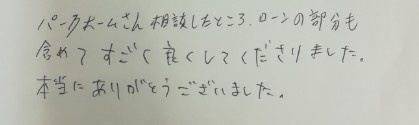 パークホームさん相談したところ、ローンの部分も
含めてすごく良くしてくださりました。
本当にありがとうございました。